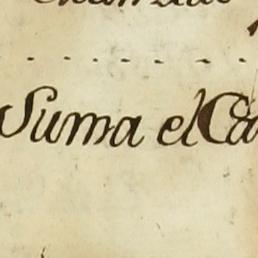 Suma el Ca